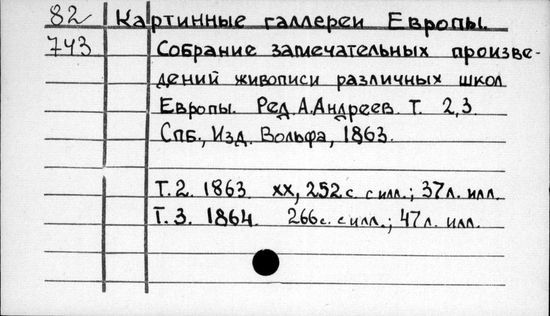 82 Картинные галлереи Европы.
743 Собрание замечательных произве-
дений живописи различных школ
Европы. Ред. А. Андреев. Т. 2,3.
Спб., Изд. Вольфа, 1863.
Т. 2. 1863. XX, 252 с. с илл.; 37 л. илл.
Т. 3. 1864. 266 с. с илл.; 47 л. илл.